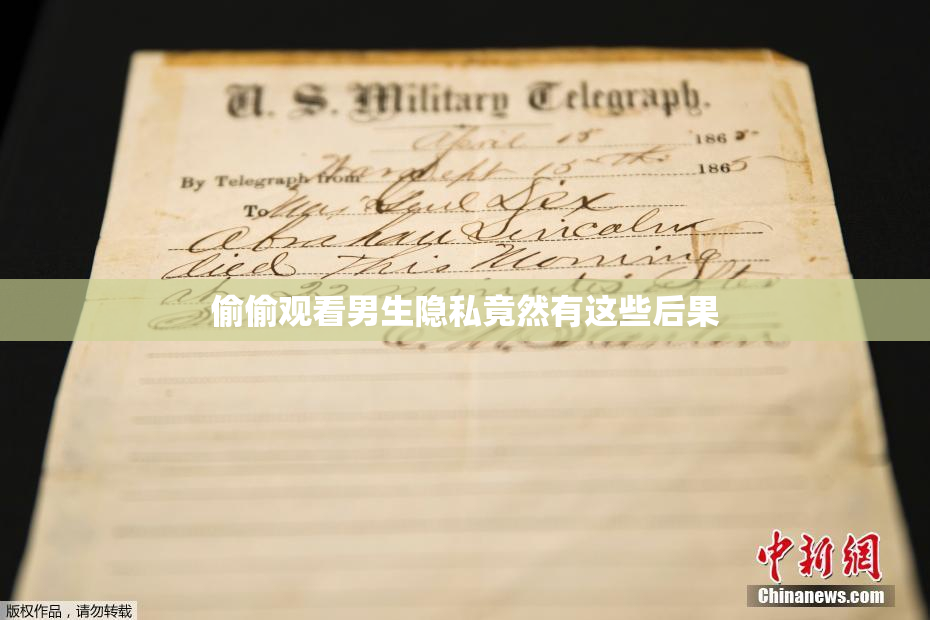 U. S. Military Telegraph.
April 15 1865
By Telegraph from War Dept 15th 1865
To Maj Genl Dix
Abraham Lincoln
died This Morning
at 22 minutes after
偷偷观看男生隐私竟然有这些后果
中新網
Chinanews.com
版权作品,请勿转载